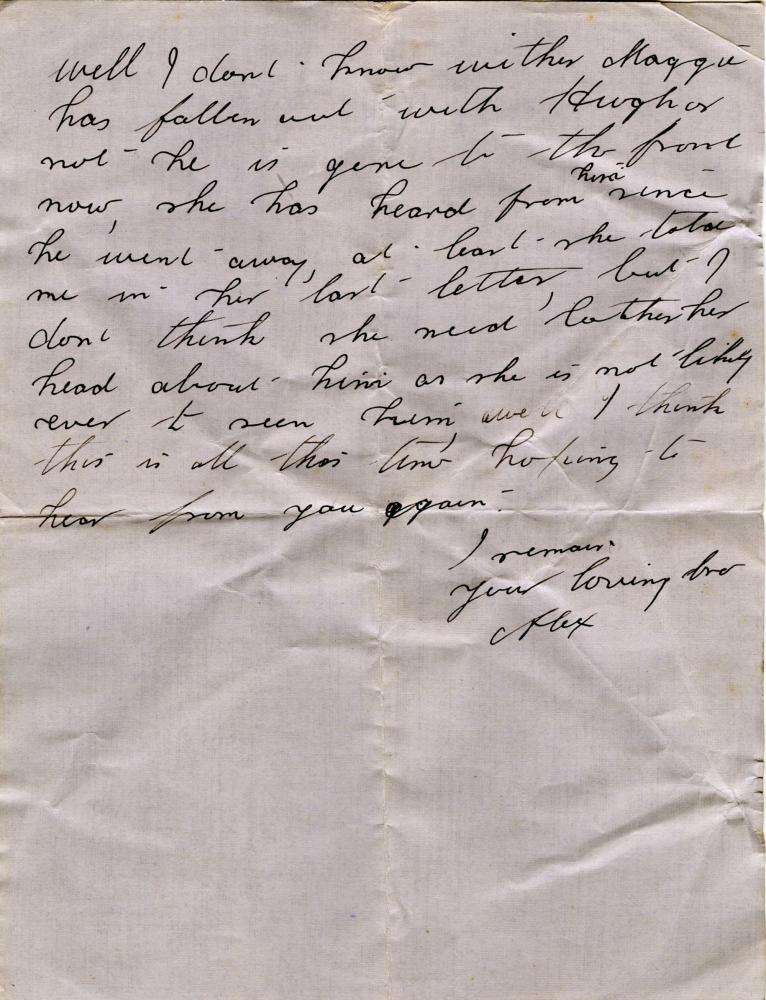 well I dont know wither Maggie
has fallen out with Hugh or
not he is gone to the front
now, she has heard from him since
he went away, at least she told
me in her last letter, but I
dont think she need bother her
head about him as she is not likly
ever to seen him, well I think
this is all this time hoping to
hear from you again.
I remain.
your loving bro
Alex